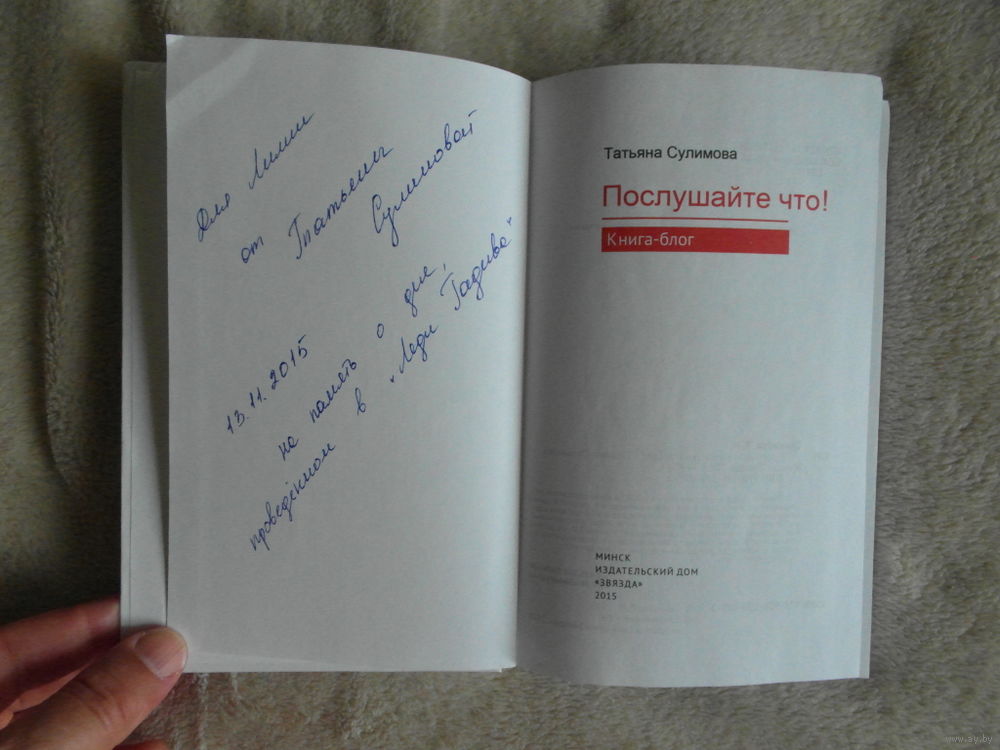 Для Лилии
от Татьяны
Сулимовой
13.11.2015
на память о дне,
проведённом в „Леди Годива“
Татьяна Сулимова
Послушайте что!
Книга-блог
МИНСК
ИЗДАТЕЛЬСКИЙ ДОМ
«ЗВЯЗДА»
2015
www.ay.by